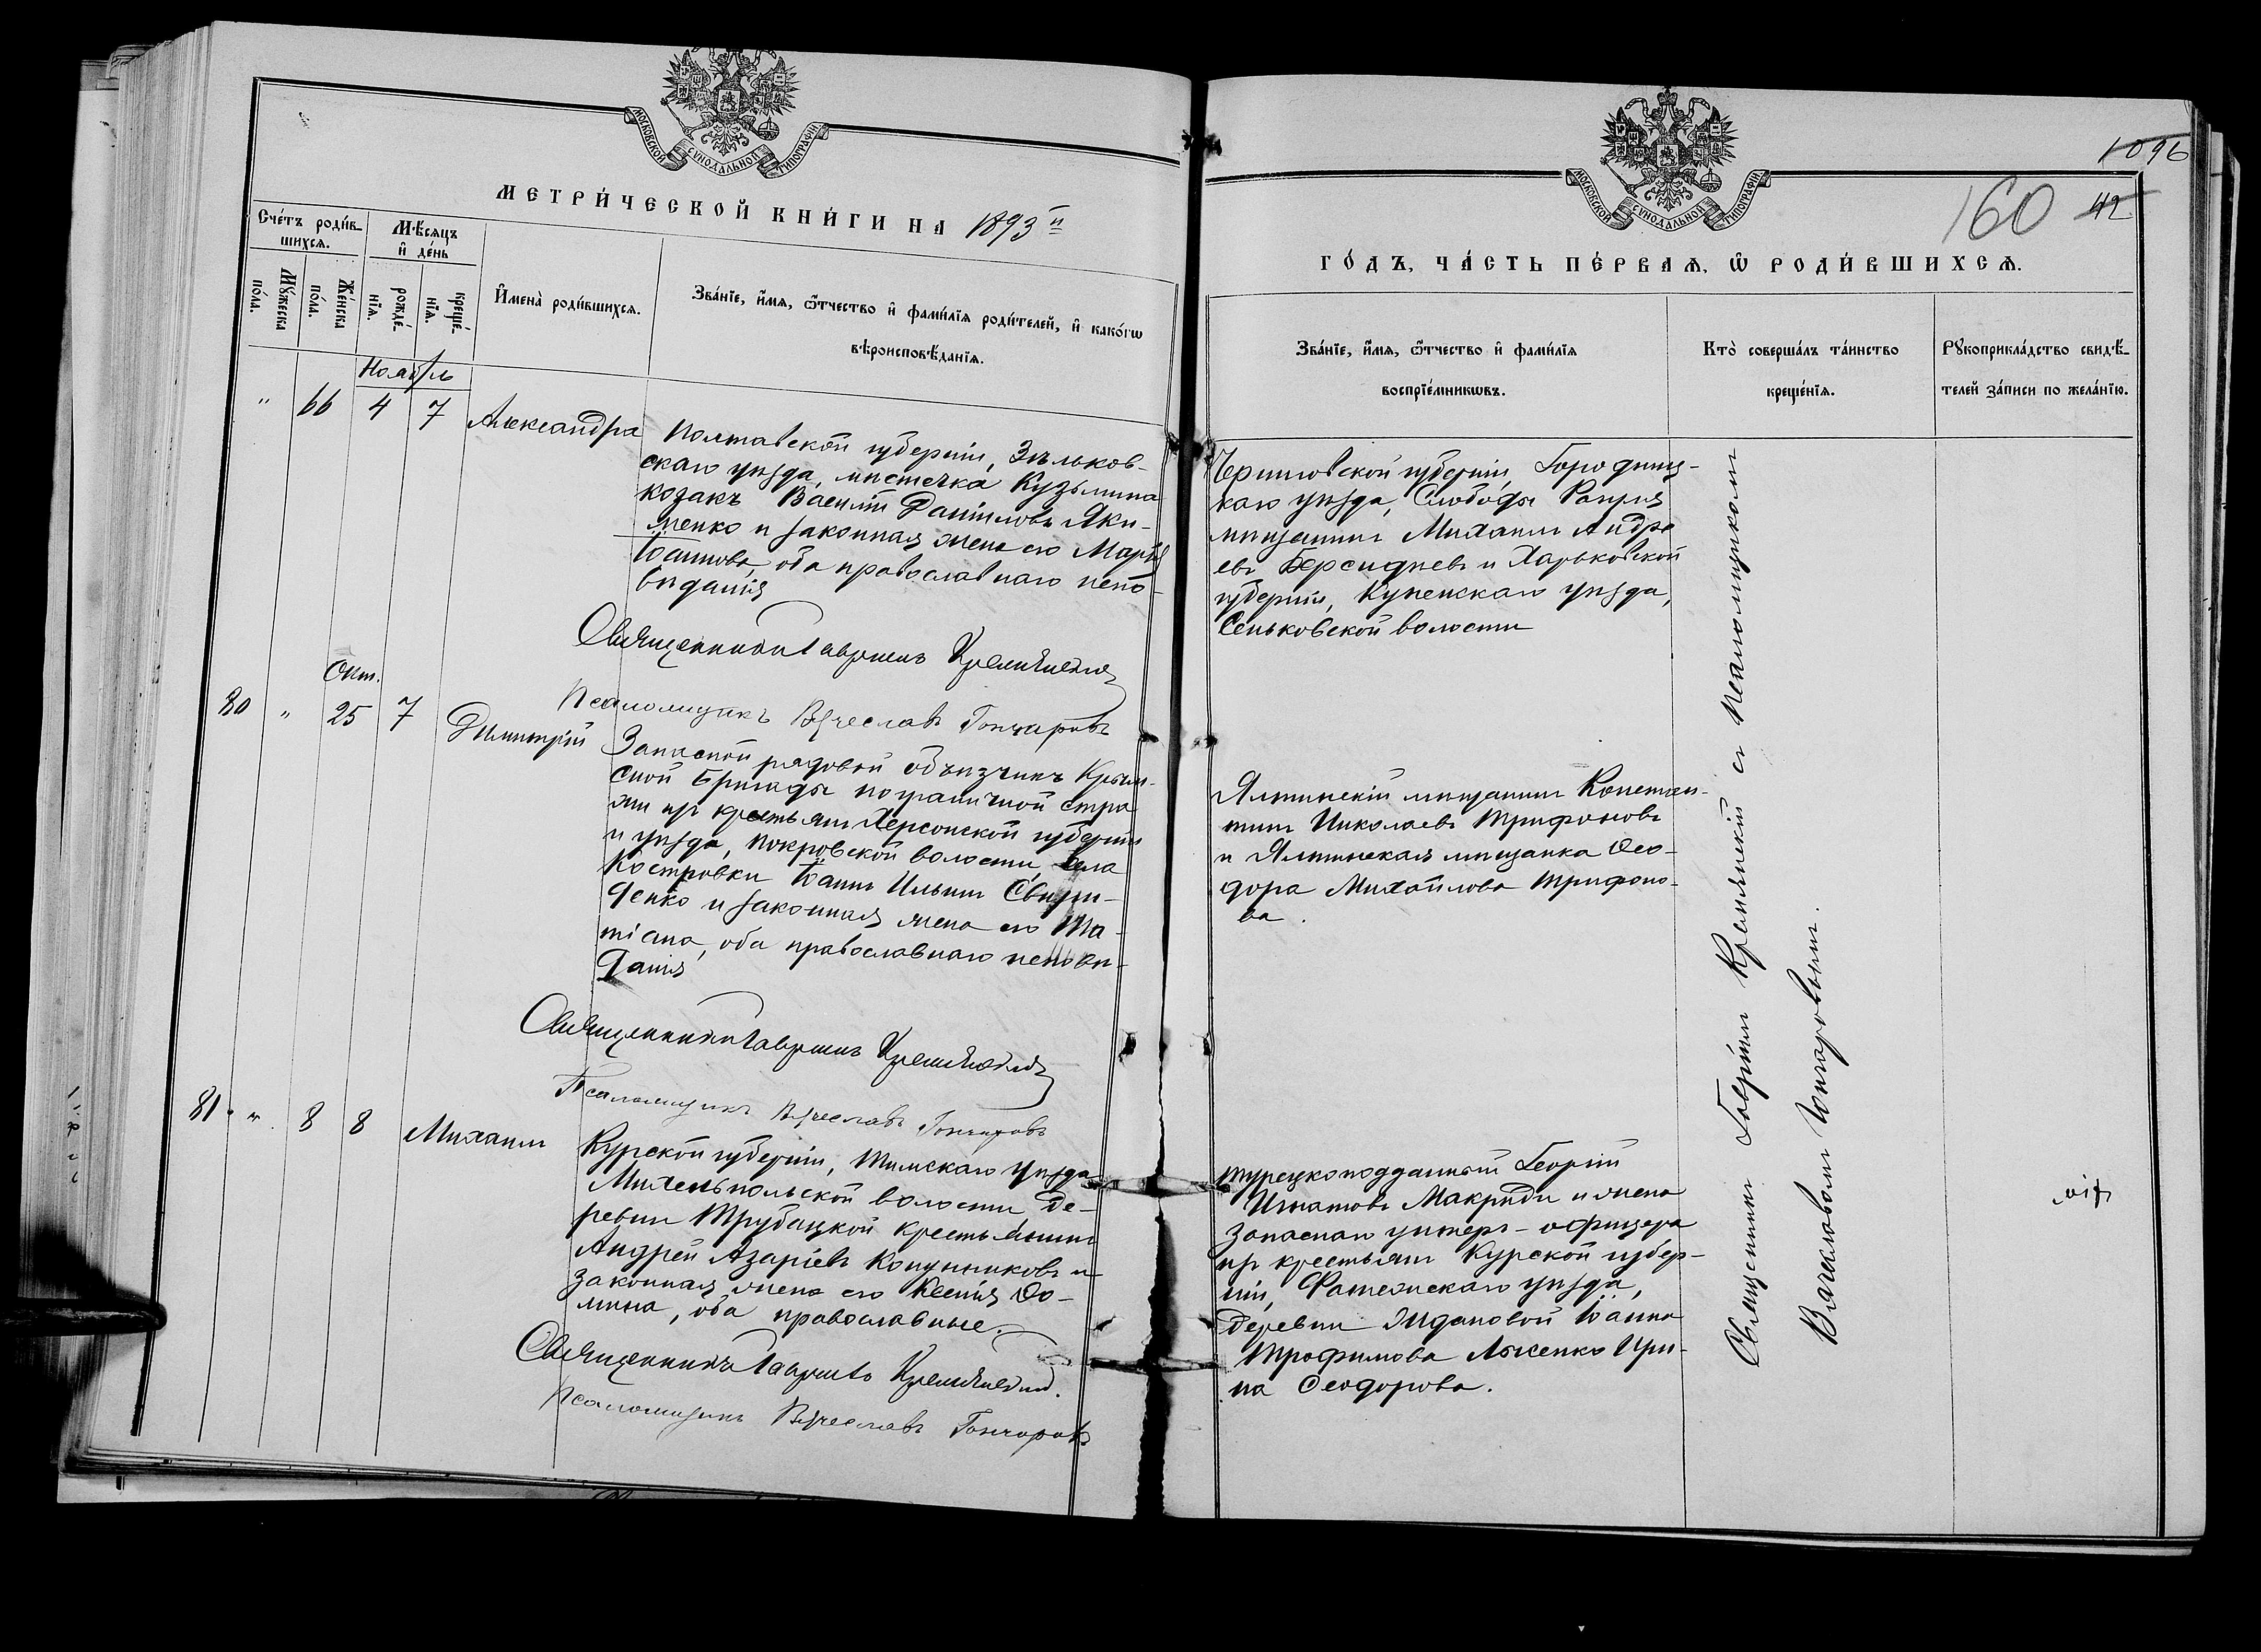 МОСКОВСКОЙ СѴНОДАЛЬНОЙ ТИПОГРАФІИ
МЕТРИ́ЧЕСКОЙ КНИ́ГИ НА 1893 й
Сче́тъ роди́в-
шихсѧ.
Мѣ́сяцъ
и҆ де́нь
Мꙋ́жеска
по́ла.
Же́нска
по́ла.
рожде́-
нїѧ.
креще́-
нїѧ.
И҆мена̀ роди́вшихсѧ.
Зва́нїе, и҆́мѧ, ѻ҆́тчество и҆ фами́лїѧ роди́телей, и҆ како́гѡ
вѣроисповѣ́данїѧ.
Ноябрь
" 66 4 7 Александра
Полтавской губерніи, Зѣньков-
скаго уѣзда, мѣстечка Кузьмина
козакъ Василій Даніиловъ Яки-
менко и законная жена его Марія
Іоаннова, оба православнаго испо-
вѣданія
Священникъ Гавріилъ Кремянскій
Псаломщикъ Вячеславъ Гончаровъ
Окт.
80 " 25 7 Димитрій
Запасной рядовой объѣзчикъ Крым-
ской бригады пограничной стра-
жи изъ крестьянъ Херсонской губерніи
и уѣзда, Покровской волости, села
Костровки Іоаннъ Ильинъ Свири-
денко и законная жена его Та-
тіана, оба православнаго исповѣ-
данія
Священникъ Гавріилъ Кремянскій
Псаломщикъ Вячеславъ Гончаровъ
81 " 8 8 Михаилъ
Курской губерніи, Тимскаго уѣзда
Михельпольской волости, де-
ревни Трубацкой крестьянинъ
Андрей Азаріевъ Конунниковъ и
законная жена его Ксенія Ѳо-
мина, оба православные.
Священникъ Гавріилъ Кремянскій.
Псаломщикъ Вячеславъ Гончаровъ
МОСКОВСКОЙ СѴНОДАЛЬНОЙ ТИПОГРАФІИ
1096
160 42
ГО́ДЪ, ЧА́СТЬ ПЕ́РВАѦ, Ѡ҆ РОДИ́ВШИХСѦ.
Зва́нїе, и҆́мѧ, ѻ҆́тчество и҆ фами́лїѧ
воспрїе́мникѡвъ.
Кто̀ соверша́лъ та́инство
креще́нїѧ.
Рꙋкоприкла́дство свидѣ́-
телей за́писи по жела́нїю.
Черниговской губерніи, Городниц-
каго уѣзда, Слободы
мѣщанинъ Михаилъ Андре
евъ и Харьковской
губерніи, Купенскаго уѣзда,
Сеньковской волости
Ялтинскій мѣщанинъ Констан-
тинъ Николаевъ Трифоновъ
и Ялтинская мѣщанка Ѳео-
дора Михайлова Трифоно-
ва.
Турецкоподданный Георгій
Игнатовъ Макриди и жена
запаснаго унтеръ-офицера
изъ крестьянъ Курской губер-
ніи, Фатежскаго уѣзда,
деревни Ждановой Іоанна
Трофимова Лысенко Ири-
на Ѳеодорова.
Священникъ Гавріилъ Кремянскій съ псаломщикомъ
Вячеславомъ Гончаровымъ.